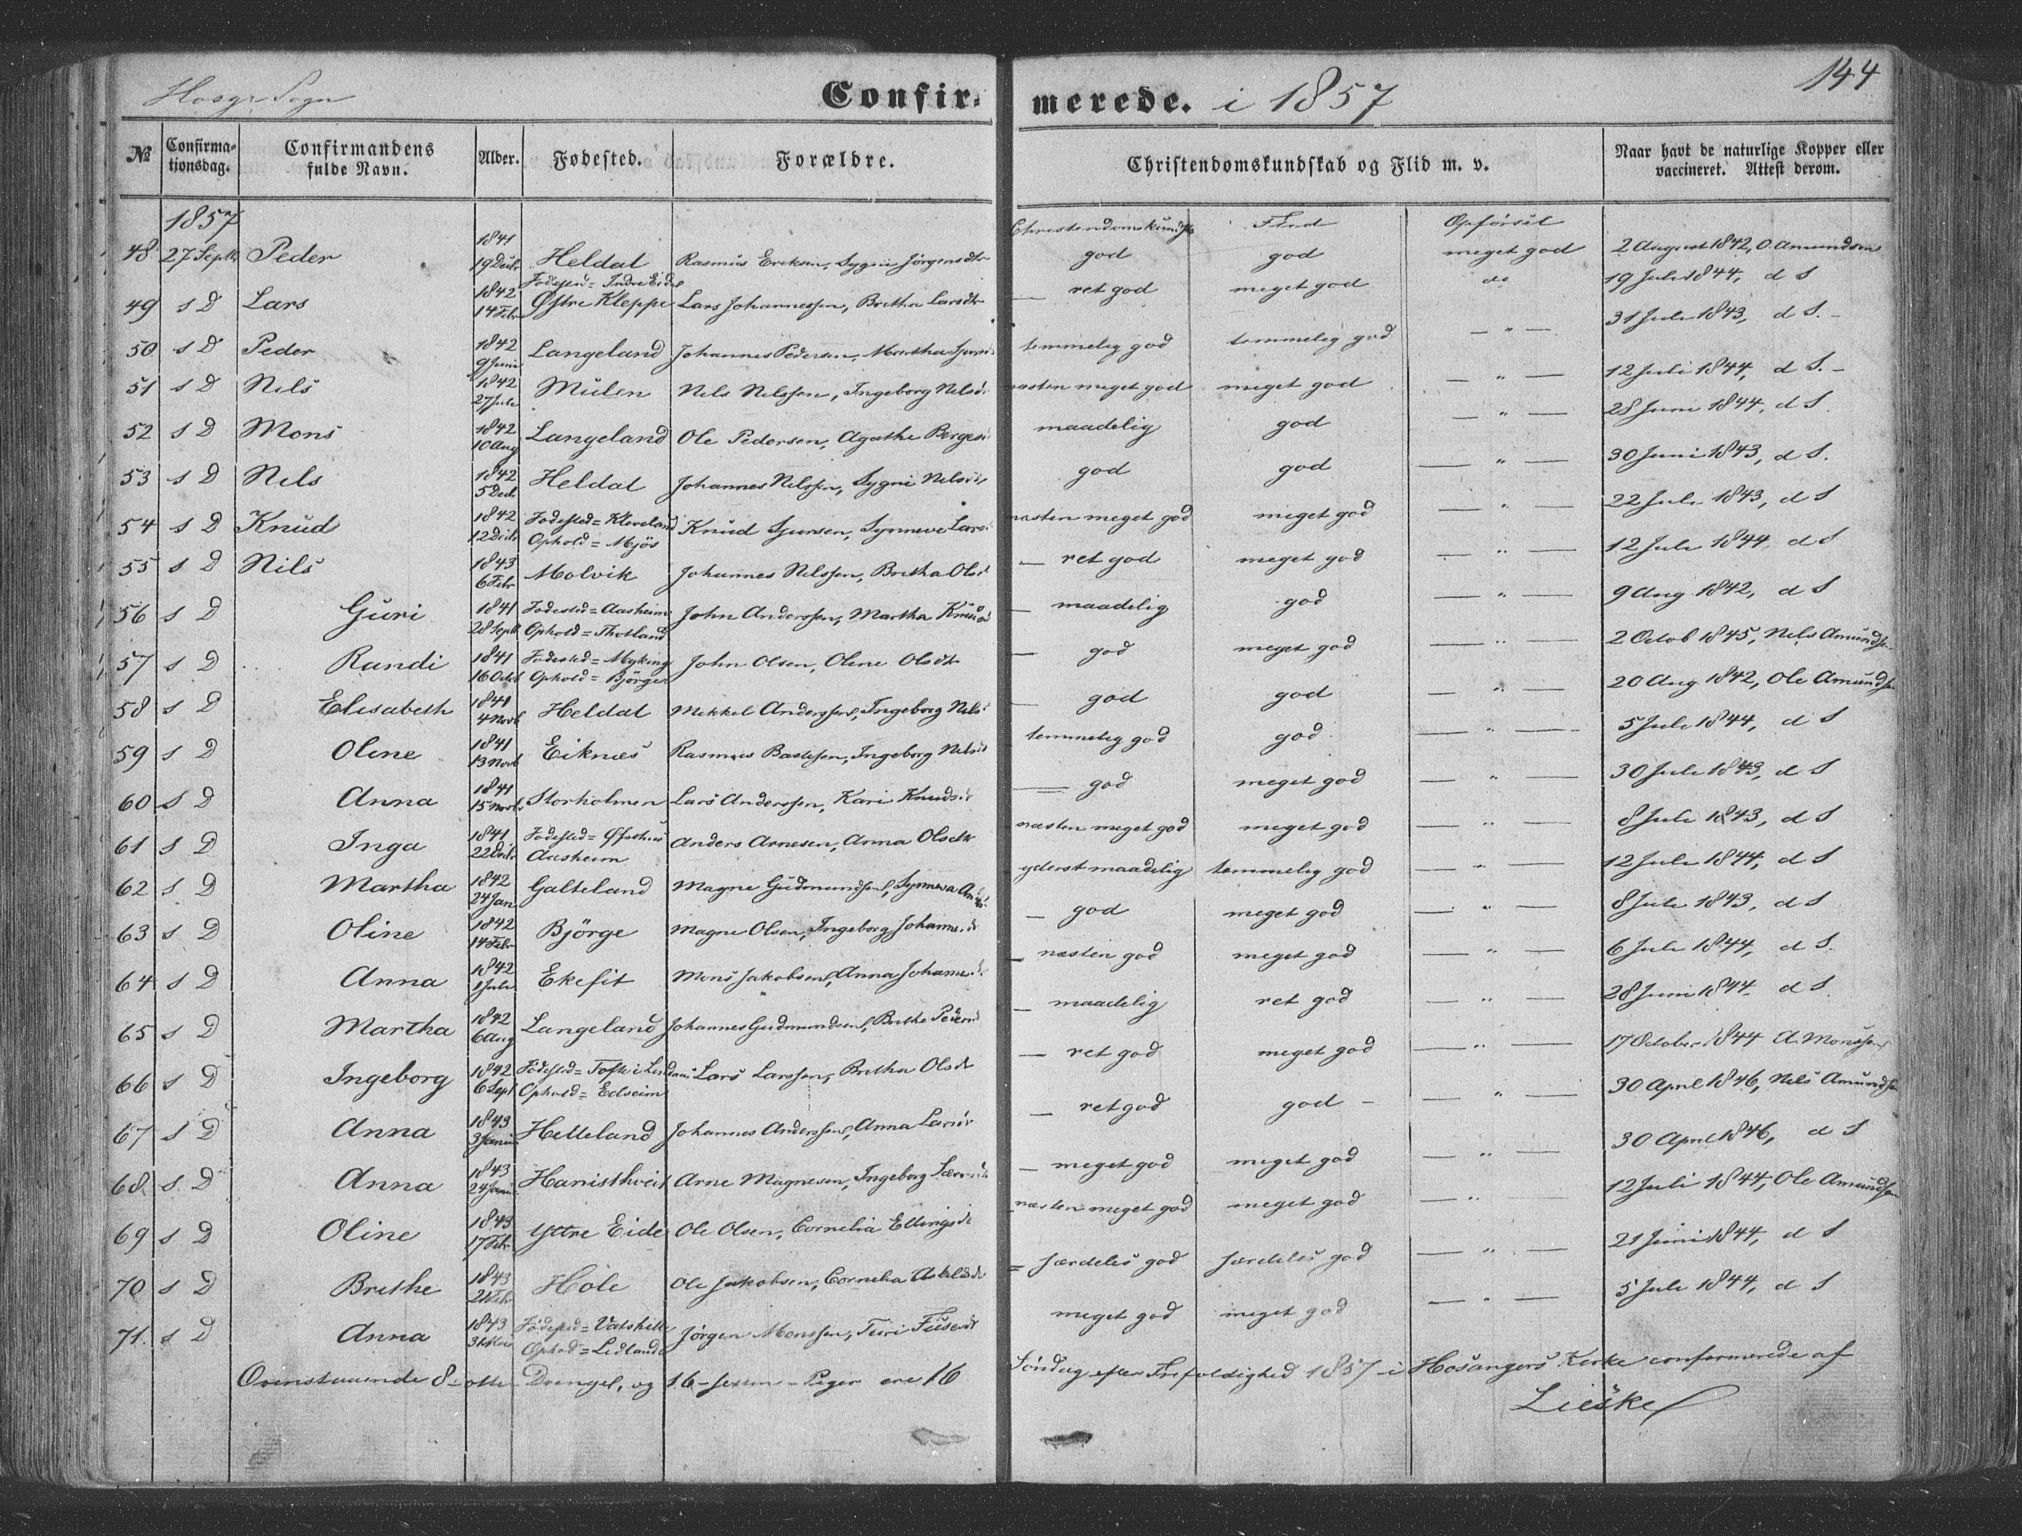 Hosgr Sogn
Confir-merede. i 1857
144
№ Confirma-tionsdag. Confirmandens fulde Navn. Alder. Fødested. Forældre. Christendomskundskab og Flid m. v. Naar havt de naturlige Kopper eller vaccineret. Attest derom.
1857 Christendomskundsk Flid Opførsel
48 27 Septb Peder 1841 19 Decbr Heldal Rasmus Eriksen, Sygni Jörgensdtr god god meget god 2 August 1842, O. Amundsen
49 s D Lars 1842 14 Febr Fødested = Indre Eide Østre Kleppe Lars Johannessen, Brithe Larsdtr — ret god meget god do 19 Juli 1844, d S
50 s D Peder 1842 9 Juni Langeland Johannes Pedersen, Martha temmelig god temmelig god — " — 31 Juli 1843, d S. -
51 s D Nils 1842 27 Juli Mülen Nels Nelssen, Ingeborg Nelsd. næsten meget god meget god — " — 12 Juli 1844, d S. -
52 s D Mons 1842 10 Aug Langeland Ole Pedersen, Agathe Berges maadelig god — " — 28 Juni 1844, d S.
53 s D Nils 1842 5 Decb Heldal Johannes Nilssen, Sygni Nelsd. god god — " — 30 Juni 1843, d S.
54 s D Knüd 1842 12 Decbr Fødested = Kleveland Ophold = Mjös Knüd Sjursen, Synneve Lars næsten meget god meget god — " — 22 Juli 1843, d S
55 s D Nils 1843 6 Febr Molvik Johannes Nilssen, Britha Olsd — ret god meget god — " — 12 Juli 1844, d S
56 s D Guri 1841 28 Septb Fødested = Aasheim Ophold = Thotland John Anderssen, Martha Knüds — maadelig god — " — 9 Aug 1842, d S
57 s D Randi 1841 16 Octob Fødested = Myking Ophold = Björge John Olsen, Oline Olsdtr — god meget god — " — 2 Octob 1845, Nels Amundsen
58 s D Elisabeth 1841 4 Novb Heldal Mikkel Anderssen, Ingeborg Nels — god god — " — 20 Aug 1842, Ole Amundsen
59 s D Oline 1841 13 Novb Eiknæs Rasmus Ingeborg Nelsd temmelig god god — " — 5 Juli 1844, d S
60 s D Anna 1841 15 Novb Storholmen Lars Anderssen, Kari Knudsd — god meget god — " — 30 Juli 1843, d S
61 s D Inga 1841 22 Decbr Fødested = Aasheim Anders Arnesen, Anna Olsdtr næsten meget god meget god — " — 8 Juli 1843, d S
62 s D Martha 1842 24 Jan Galteland Magne Güdmundsen, Synneva yderst maadelig temmelig god — " — 12 Juli 1844, d S
63 s D Oline 1842 14 Febr Björge Magne Olsen, Ingeborg Johannesd — god meget god — " — 8 Juli 1843, d S
64 s D Anna 1842 1 Juli Ekefit Mons Jakobsen, Anna Johannesd — næsten god meget god — " — 6 Juli 1844, d S.
65 s D Martha 1842 6 Aug Langeland Johannes Gudmundsen, Brithe Pedersd — maadelig ret god — " — 28 Juni 1844 d S.
66 s D Ingeborg 1842 6 Sept Fødested = Tofte i Lindaas Ophold = Edseim Lars Larssen, Britha Olsdt — ret god meget god — " — 17 October 1844 A. Monssen
67 s D Anna 1843 3 Janu Helleland Johannes Anderssen, Anna Larsd — ret god god — — " — 30 April 1846, Nels Amundsen
68 s D Anna 1843 24 Janu Hanisthveit Arne Magnesen, Ingeborg — meget god meget god — " — 30 April 1846, d S
69 s D Oline 1843 17 Febr Yttre Eide Ole Olsen, Cornelia Ellingsd næsten meget god meget god — " — 12 Juli 1844, Ole Amundsen
70 s D Brithe 1843 21 Febr Hole Ole Jakobsen, Cornelia særdeles god særdeles god — " — 21 Juni 1844, d S
71. s D Anna 1843 Fødested = Vatshelle Ophold = Lidland Jörgen Monssen, Turi meget god meget god — " — 5 Juli 1844, d S
Ovenstaaende 8 - otte - Drenge, og 16 - sexten - Piger ere 16 Söndag efter Trefoldighed 1857 i Hosangers Kirke confirmerede af
Lieske